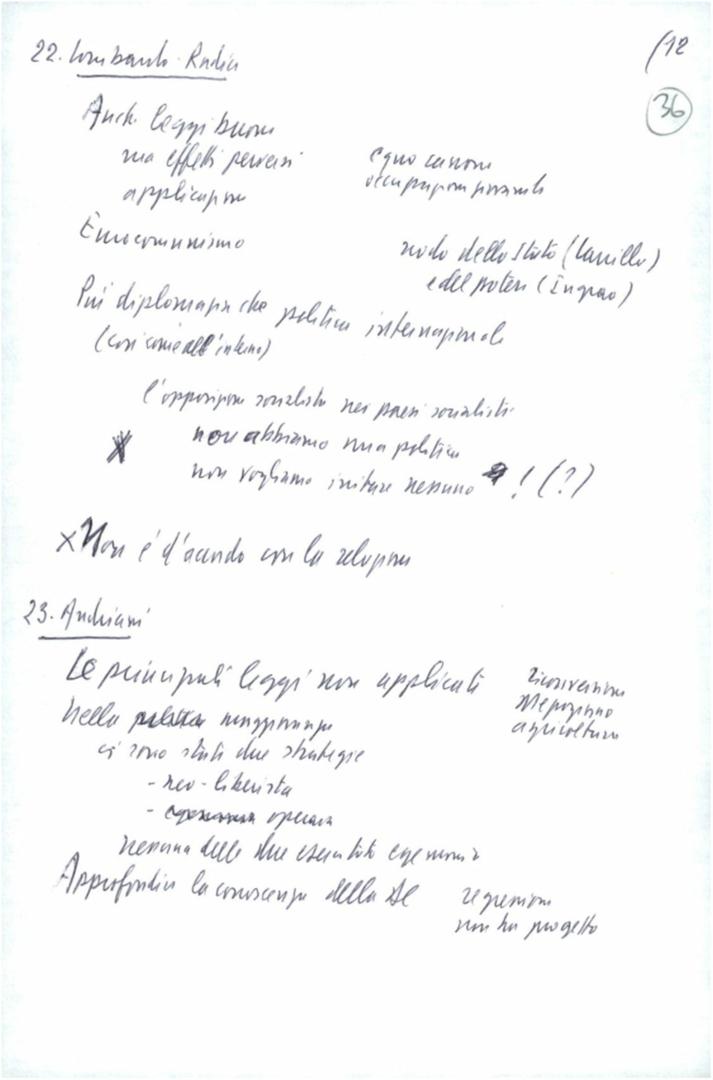 22. Lombardo-Radice
(12
36
Anche leggi buone
ma effetti perversi
applicazione
equo canone
occupazione giovanile
Eurocomunismo
nodo dello Stato (Carrillo)
e del potere (Ingrao)
Più diplomazia che politica internazionale
(così come all'interno)
l'opposizione socialista nei paesi socialisti
x non abbiamo una politica
non vogliamo imitare nessuno ! (?)
x Non é d'accordo con la relazione
23. Andriani
Le principali leggi non applicate
riconversione
Mezzogiorno
agricoltura
Nella maggioranza
ci sono state due strategie
- neo-liberista
- operaia
nessuna delle due esercitato egemonia
Approfondire la conoscenza della DC
regressione
non ha progetto